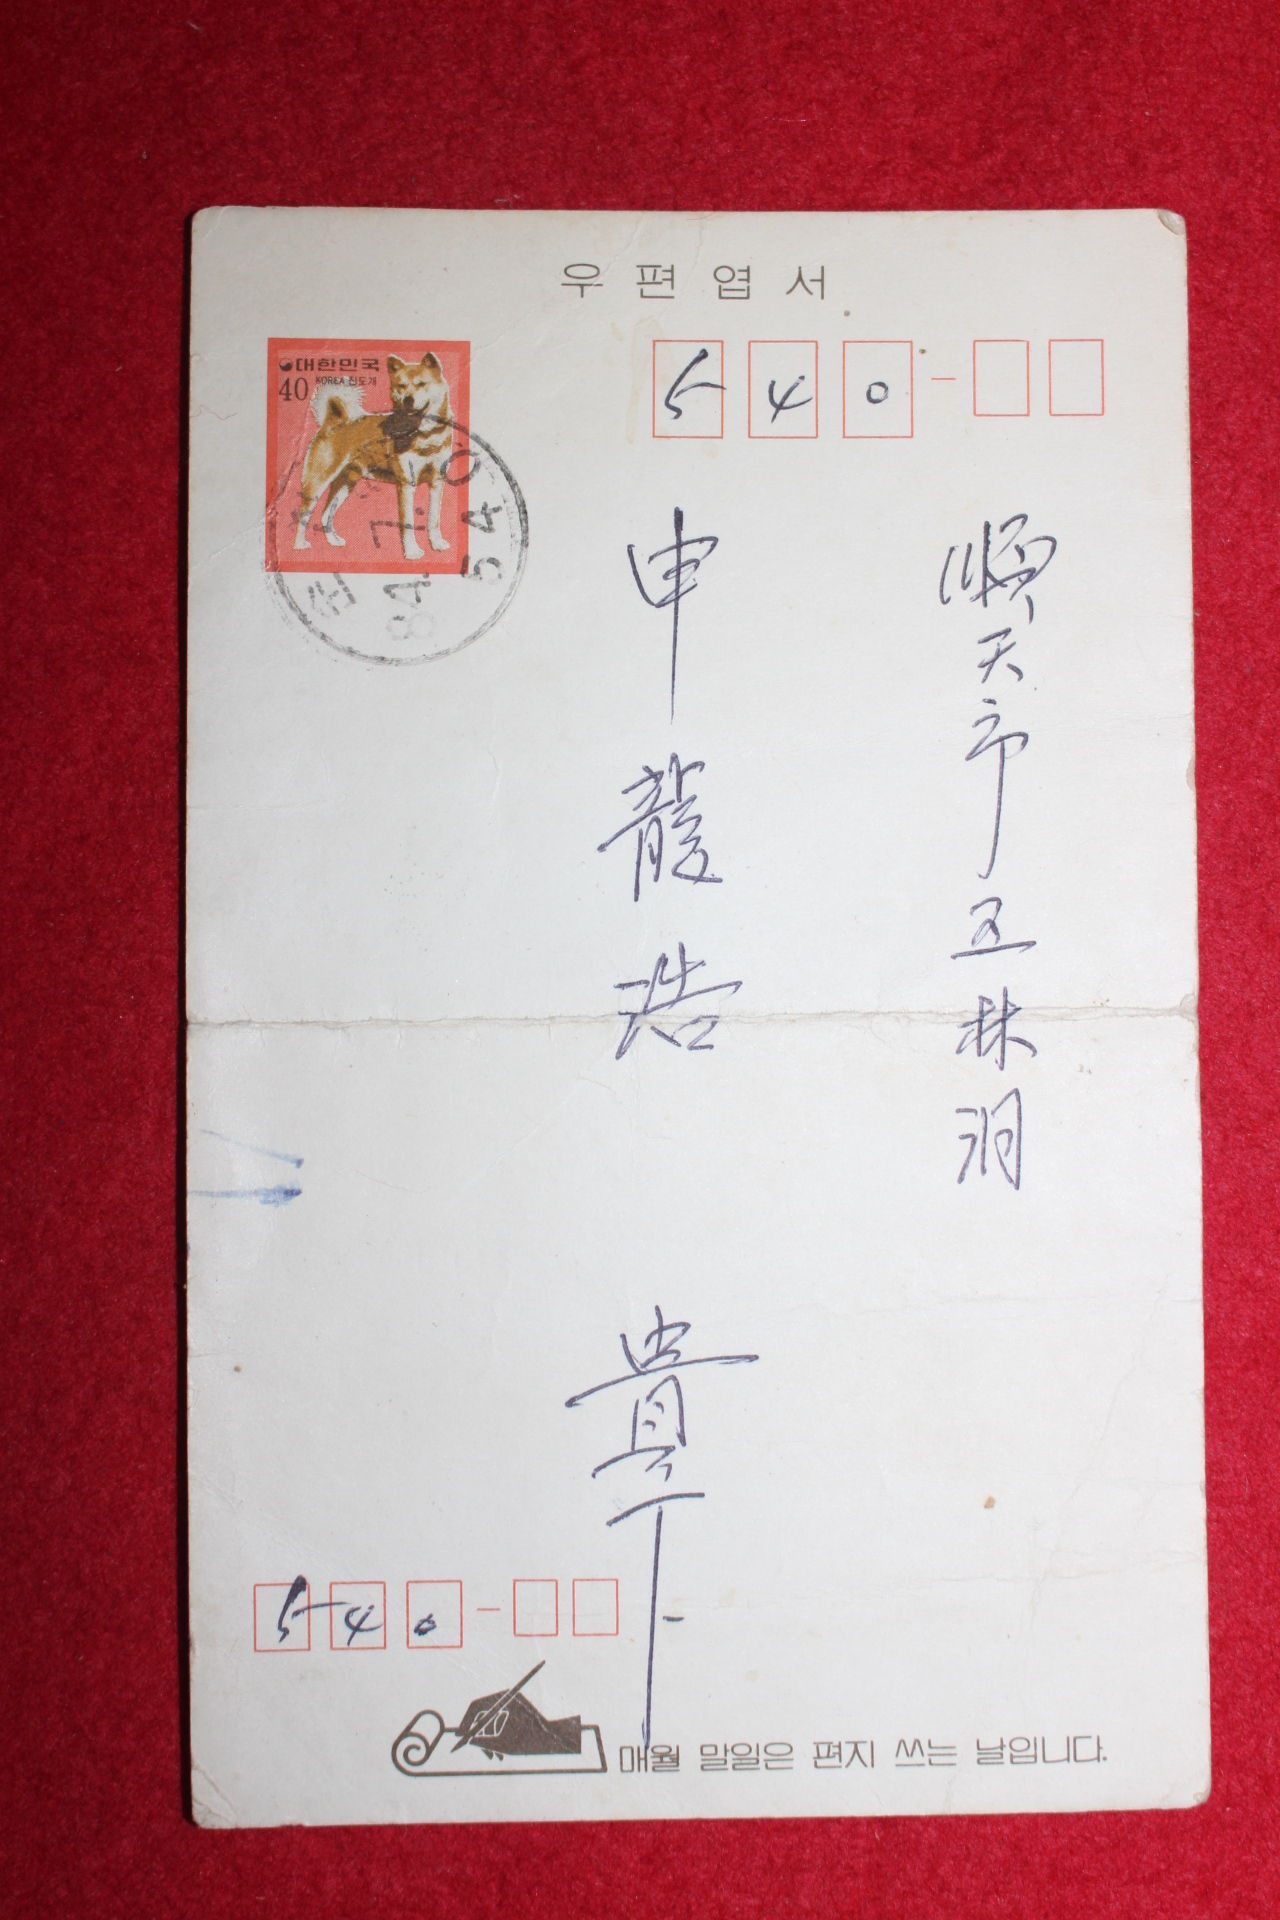 우편엽서
대한민국
40 KOREA 진도개
순천
84.7.20
540
540-
順天市 五林洞
申龍浩 貴下
540-
매월 말일은 편지 쓰는 날입니다.